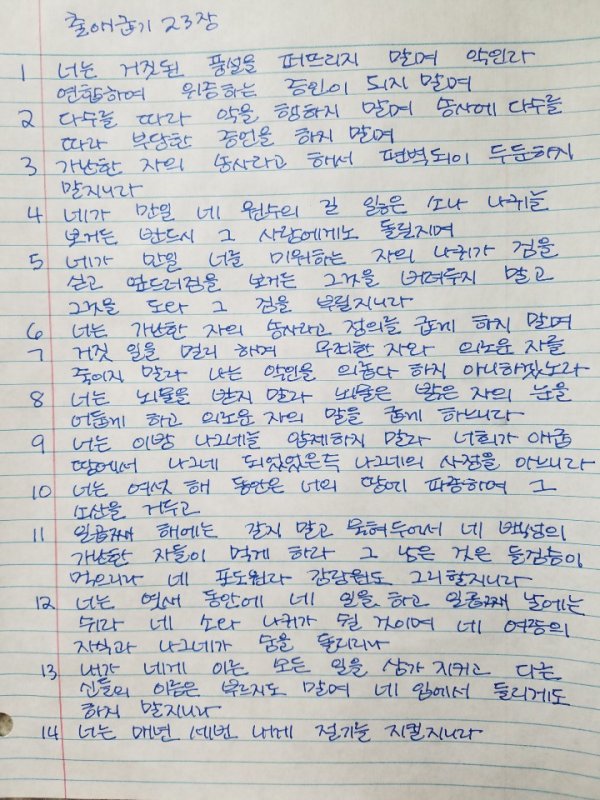 출애굽기 23장
1 너는 거짓된 풍설을 퍼뜨리지 말며 악인과
연합하여 위증하는 증인이 되지 말며
2 다수를 따라 악을 행하지 말며 송사에 다수를
따라 부당한 증언을 하지 말며
3 가난한 자의 송사라고 해서 편벽되이 두둔하지
말지니라
4 네가 만일 네 원수의 길 잃은 소나 나귀를
보거든 반드시 그 사람에게로 돌릴지며
5 네가 만일 너를 미워하는 자의 나귀가 짐을
싣고 엎드러짐을 보거든 그것을 버려두지 말고
그것을 도와 그 짐을 부릴지니라
6 너는 가난한 자의 송사라고 정의를 굽게 하지 말며
7 거짓 일을 멀리 하며 무죄한 자와 의로운 자를
죽이지 말라 나는 악인을 의롭다 하지 아니하겠노라
8 너는 뇌물을 받지 말라 뇌물은 밝은 자의 눈을
어둡게 하고 의로운 자의 말을 굽게 하느니라
9 너는 이방 나그네를 압제하지 말라 너희가 애굽
땅에서 나그네 되었었은즉 나그네의 사정을 아느니라
10 너는 여섯 해 동안은 너의 땅에 파종하여 그
소산을 거두고
11 일곱째 해에는 갈지 말고 묵혀두어서 네 백성의
가난한 자들이 먹게 하라 그 남은 것은 들짐승이
먹으리라 네 포도원과 감람원도 그리할지니라
12 너는 엿새 동안에 네 일을 하고 일곱째 날에는
쉬라 네 소와 나귀가 쉴 것이며 네 여종의
자식과 나그네가 숨을 돌리리라
13 내가 네게 이른 모든 일을 삼가 지키고 다른
신들의 이름은 부르지도 말며 네 입에서 들리게도
하지 말지니라
14 너는 매년 세번 내게 절기를 지킬지니라